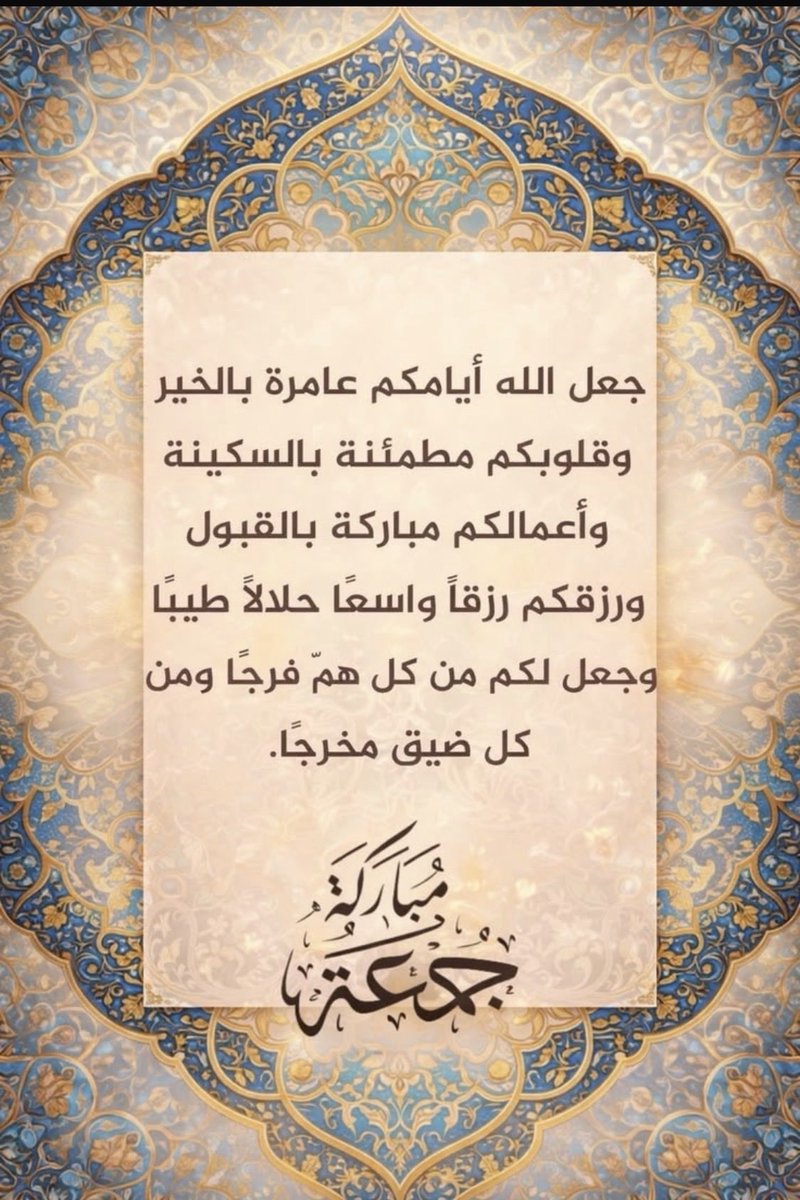 جعل الله أيامكم عامرة بالخير
وقلوبكم مطمئنة بالسكينة
وأعمالكم مباركة بالقبول
ورزقكم رزقاً واسعًا حلالاً طيبًا
وجعل لكم من كل همّ فرجًا ومن
كل ضيق مخرجًا.
مُبَارَكَة
جُمُعَة